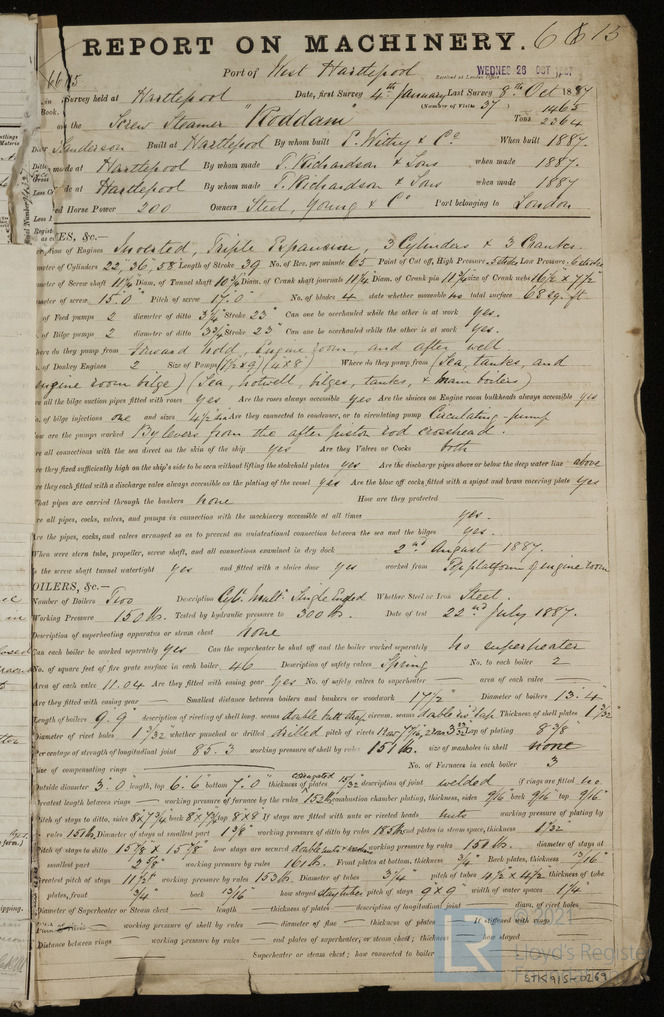 REPORT ON MACHINERY. 6615
6615 Port of West Hartlepool Received at London Office WEDNES 26 OCT 1887
in Survey held at Hartlepool Date, first Survey 4th January Last Survey 8th Oct 1887
Book. (Number of Visits 37) 1465
on the Screw Steamer "Roddam" Tons 2364
Sanderson Built at Hartlepool By whom built E. Withy & Co When built 1887.
made at Hartlepool By whom made T. Richardson & Sons when made 1887.
de at Hartlepool By whom made T. Richardson & Sons when made 1887
ed Horse Power 200 Owners Steel, Young & Co Port belonging to London
ES, &c.—
tion of Engines Inverted, Triple Expansion, 3 Cylinders & 3 Cranks.
meter of Cylinders 22", 36", 58 Length of Stroke 39 No. of Rev. per minute 65 Point of Cut off, High Pressure Low Pressure
meter of Screw shaft 11¼ Diam. of Tunnel shaft 10¾ Diam. of Crank shaft journals 11¼ Diam. of Crank pin 11¾ size of Crank webs 16½ x 7½"
meter of screw 15'.0" Pitch of screw 17'.0" No. of blades 4 state whether moveable no total surface 68 sq. ft.
of Feed pumps 2 diameter of ditto 3¼" Stroke 23" Can one be overhauled while the other is at work yes.
of Bilge pumps 2 diameter of ditto 3¾" Stroke 23" Can one be overhauled while the other is at work yes.
here do they pump from forward hold, Engine room, and after well
of Donkey Engines 2 Size of Pumps (7½ x 9) (4 x 8) Where do they pump from (Sea, tanks, and
engine room bilge) (Sea, hotwell, bilges, tanks, & main boilers)
re all the bilge suction pipes fitted with roses yes Are the roses always accessible yes Are the sluices on Engine room bulkheads always accessible yes
o. of bilge injections one and sizes 4½ in Are they connected to condenser, or to circulating pump Circulating pump
ow are the pumps worked By levers from the after piston rod crosshead.
re all connections with the sea direct on the skin of the ship yes Are they Valves or Cocks both
re they fixed sufficiently high on the ship's side to be seen without lifting the stokehold plates yes Are the discharge pipes above or below the deep water line above
re they each fitted with a discharge valve always accessible on the plating of the vessel yes Are the blow off cocks fitted with a spigot and brass covering plate yes
What pipes are carried through the bunkers none How are they protected —
re all pipes, cocks, valves, and pumps in connection with the machinery accessible at all times yes.
re the pipes, cocks, and valves arranged so as to prevent an unintentional connection between the sea and the bilges yes.
When were stern tube, propeller, screw shaft, and all connections examined in dry dock 2nd August 1887.
the screw shaft tunnel watertight yes and fitted with a sluice door yes worked from Top platform of engine room
OILERS, &c.—
Number of Boilers Two Description Cyl. Multi. Single Ended Whether Steel or Iron Steel.
Working Pressure 150 lb. Tested by hydraulic pressure to 300 lb. Date of test 22nd July 1887.
Description of superheating apparatus or steam chest none
Can each boiler be worked separately yes Can the superheater be shut off and the boiler worked separately no superheater
No. of square feet of fire grate surface in each boiler 46 Description of safety valves Spring No. to each boiler 2
Area of each valve 11.04 Are they fitted with easing gear yes No. of safety valves to superheater — area of each valve —
Are they fitted with easing gear — Smallest distance between boilers and bunkers or woodwork 17½" Diameter of boilers 13.4
Length of boilers 9'.9" description of riveting of shell long. seams double butt strap circum. seams Thickness of shell plates 1 3/32"
Diameter of rivet holes 1 3/32" whether punched or drilled drilled pitch of rivets Lap of plating 8 3/8
Percentage of strength of longitudinal joint 85.3 working pressure of shell by rules 151 lb. size of manholes in shell none
Size of compensating rings — No. of Furnaces in each boiler 3
Outside diameter 3'.0" length, top 6'.6" bottom 7'.0" thickness of plates corrugated 15/32 description of joint welded if rings are fitted no
Greatest length between rings — working pressure of furnace by the rules 152 lb combustion chamber plating, thickness, sides 9/16" back 9/16" top 9/16"
Pitch of stays to ditto, sides 8 x 7¾ back 8 x 7¾ top 8 x 8 If stays are fitted with nuts or riveted heads nuts working pressure of plating by
rules 151 lb. Diameter of stays at smallest part 1 3/8" working pressure of ditto by rules 185 lb end plates in steam space, thickness 1 1/32
Pitch of stays to ditto 15 7/8 x 15 7/8" how stays are secured working pressure by rules 151 lb. diameter of stays at
smallest part working pressure by rules 161 lb. Front plates at bottom, thickness ¾" Back plates, thickness 13/16"
Greatest pitch of stays 11½" working pressure by rules 153 lb. Diameter of tubes 3¼" pitch of tubes 4½ x 4½ thickness of tube
plates, front ¾" back 13/16" how stayed stay tubes pitch of stays 9 x 9" width of water spaces 1¼"
Diameter of Superheater or Steam chest — length — thickness of plates — description of longitudinal joint — diam. of rivet holes —
Pitch of rivets — working pressure of shell by rules — diameter of flue — thickness of plates — If stiffened with rings
Distance between rings — working pressure by rules — end plates of superheater, or steam chest; thickness — how stayed
Superheater or steam chest; how connected to boiler
© 2021
LR
Lloyd's Register
Foundation
STK915-0269